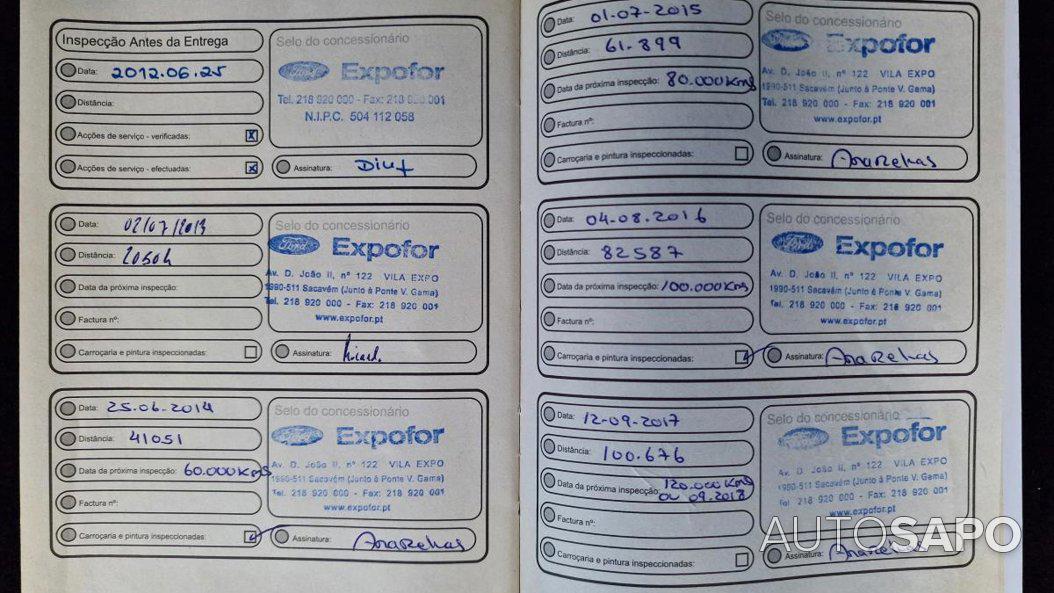 Inspecção Antes da Entrega
Data: 2012.06.25
Distância:
Acções de serviço - verificadas: X
Acções de serviço - efectuadas: X
Selo do concessionário
Ford Expofor
Tel. 218 920 000 - Fax: 218 920 001
N.I.P.C. 504 112 058
Assinatura:
Data: 02/07/2013
Distância:
Data da próxima inspecção:
Factura nº:
Carroçaria e pintura inspeccionadas:
Selo do concessionário
Ford Expofor
Av. D. João II, nº 122 VILA EXPO
1990-511 Sacavém (Junto à Ponte V. Gama)
Tel. 218 920 000 - Fax: 218 920 001
www.expofor.pt
Assinatura:
Data: 25.06.2014
Distância: 41051
Data da próxima inspecção: 60.000 Kms
Factura nº:
Carroçaria e pintura inspeccionadas:
Selo do concessionário
Ford Expofor
Av. D. João II, nº 122 VILA EXPO
1990-511 Sacavém (Junto à Ponte V. Gama)
Tel. 218 920 000 - Fax: 218 920 001
www.expofor.pt
Assinatura:
Data: 01-07-2015
Distância: 61.899
Data da próxima inspecção: 80.000 Kms
Factura nº:
Carroçaria e pintura inspeccionadas:
Selo do concessionário
Expofor
Av. D. João II, nº 122 VILA EXPO
1990-511 Sacavém (Junto à Ponte V. Gama)
Tel. 218 920 000 - Fax: 218 920 001
www.expofor.pt
Assinatura:
Data: 04-08.2016
Distância: 82587
Data da próxima inspecção: 100.000 Kms
Factura nº:
Carroçaria e pintura inspeccionadas:
Selo do concessionário
Ford Expofor
Av. D. João II, nº 122 VILA EXPO
1990-511 Sacavém (Junto à Ponte V. Gama)
Tel. 218 920 000 - Fax: 218 920 001
www.expofor.pt
Assinatura:
Data: 12-09-2017
Distância: 100.676
Data da próxima inspecção: 120.000 Kms
ou 09.2018
Factura nº:
Carroçaria e pintura inspeccionadas:
Selo do concessionário
Ford Expofor
Av. D. João II, nº 122 VILA EXPO
1990-511 Sacavém (Junto à Ponte V. Gama)
Tel. 218 920 000 - Fax: 218 920 001
www.expofor.pt
Assinatura:
AUTOSAPO